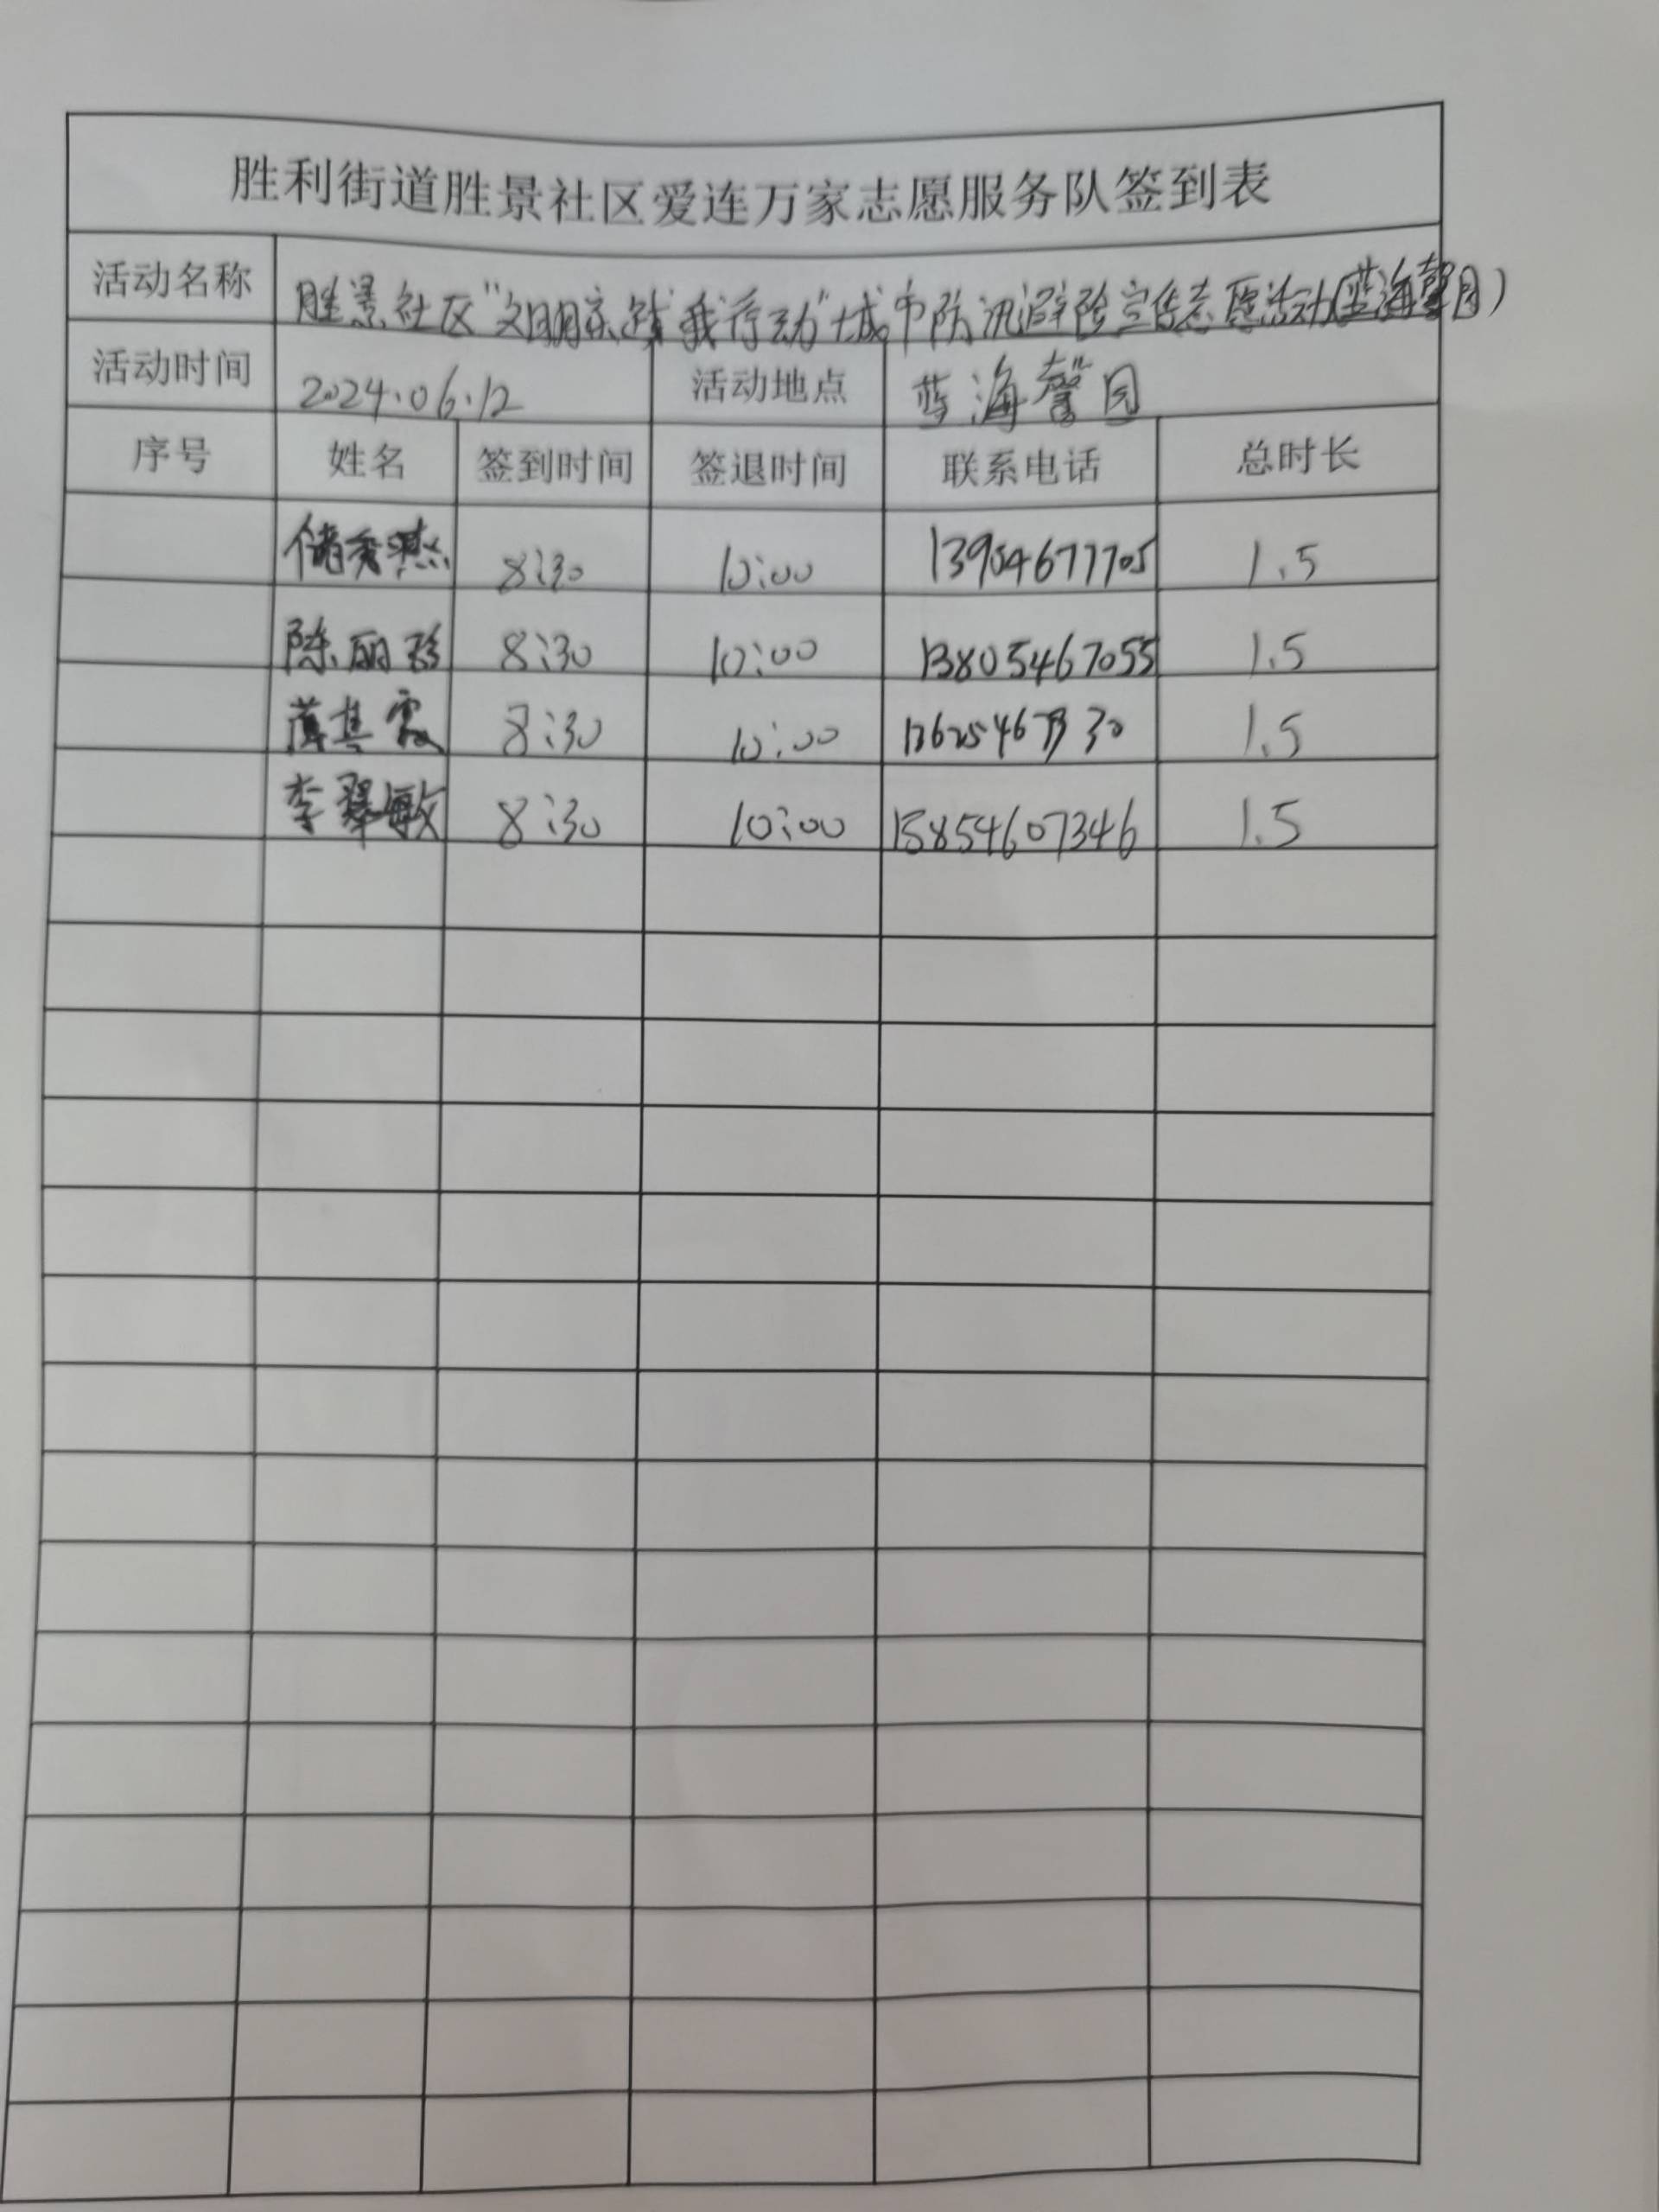 胜利街道胜景社区爱连万家志愿服务队签到表
活动名称 胜景社区"文明东营 我行动"城市防汛避险宣传志愿活动(蓝海馨园)
活动时间 2024.06.12 活动地点 蓝海馨园
序号 姓名 签到时间 签退时间 联系电话 总时长
储秀燕 8:30 10:00 13954677705 1.5
陈丽珍 8:30 10:00 13805467055 1.5
薄其霞 8:30 10:00 1.5
李翠敏 8:30 10:00 15854607346 1.5